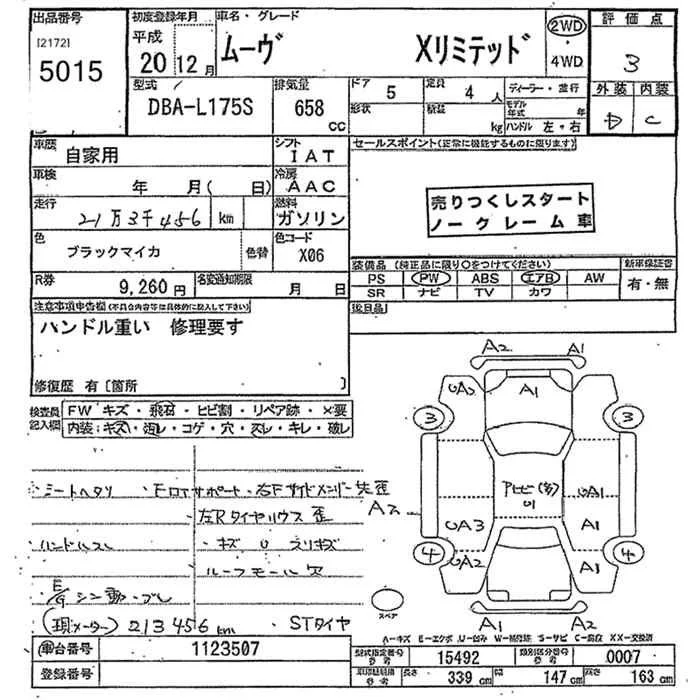 出品番号
[2172]
5015
初度登録年月
平成
20 12月
車名・グレード
ムーヴ Xリミテッド
2WD
・
4WD
評価点
3
外装 内装
D C
型式
DBA-L175S
排気量
658
CC
ドア
5
形状
定員
4 人
積載
kg
ディーラー・並行
モデル年式 年
ハンドル 左・右
車歴
自家用
シフト
IAT
車検
年 月( 日)
冷房
AAC
走行
21万3千456 km
燃料
ガソリン
色
ブラックマイカ
色替
色コード
X06
R券
9,260 円
名変通知期限
月 日
セールスポイント(正常に機能するものに限ります)
売りつくしスタート
ノークレーム車
装備品 (純正品に限り○をつけてください)
PS PW ABS エアB AW
SR ナビ TV カワ
新車保証書
有・無
後日品
注意事項申告欄(不具合内容等は具体的に記入して下さい)
ハンドル重い 修理要す
修復歴 有〔箇所 〕
検査員
記入欄
FW キズ・飛石・ヒビ割・リペア跡・×要
内装:キズ・汚レ・コゲ・穴・スレ・キレ・破レ
シートヘタリ
ハンドルスレ
E/G シン動・ブレ
(現メーター) 213456km
FロアサポートV・右Fサイドメンバー先歪
左Rタイヤハウス歪
キズ U スリキズ
ルーフモール欠
STタイヤ
A2 A1
UA2 A1
3 3
アヒビ(多)
U1
A2
UA3
UA1
A1
4 4
UA2 A1
A1 A2
スペア
A―キズ E―エクボ U―凹み W―補修跡 S―サビ C―腐食 XX―交換済
車台番号
1123507
登録番号
型式指定番号
参考
15492
類別区分番号
参考
0007
車両諸元
参考
長さ
339 cm
幅
147 cm
高さ
163 cm